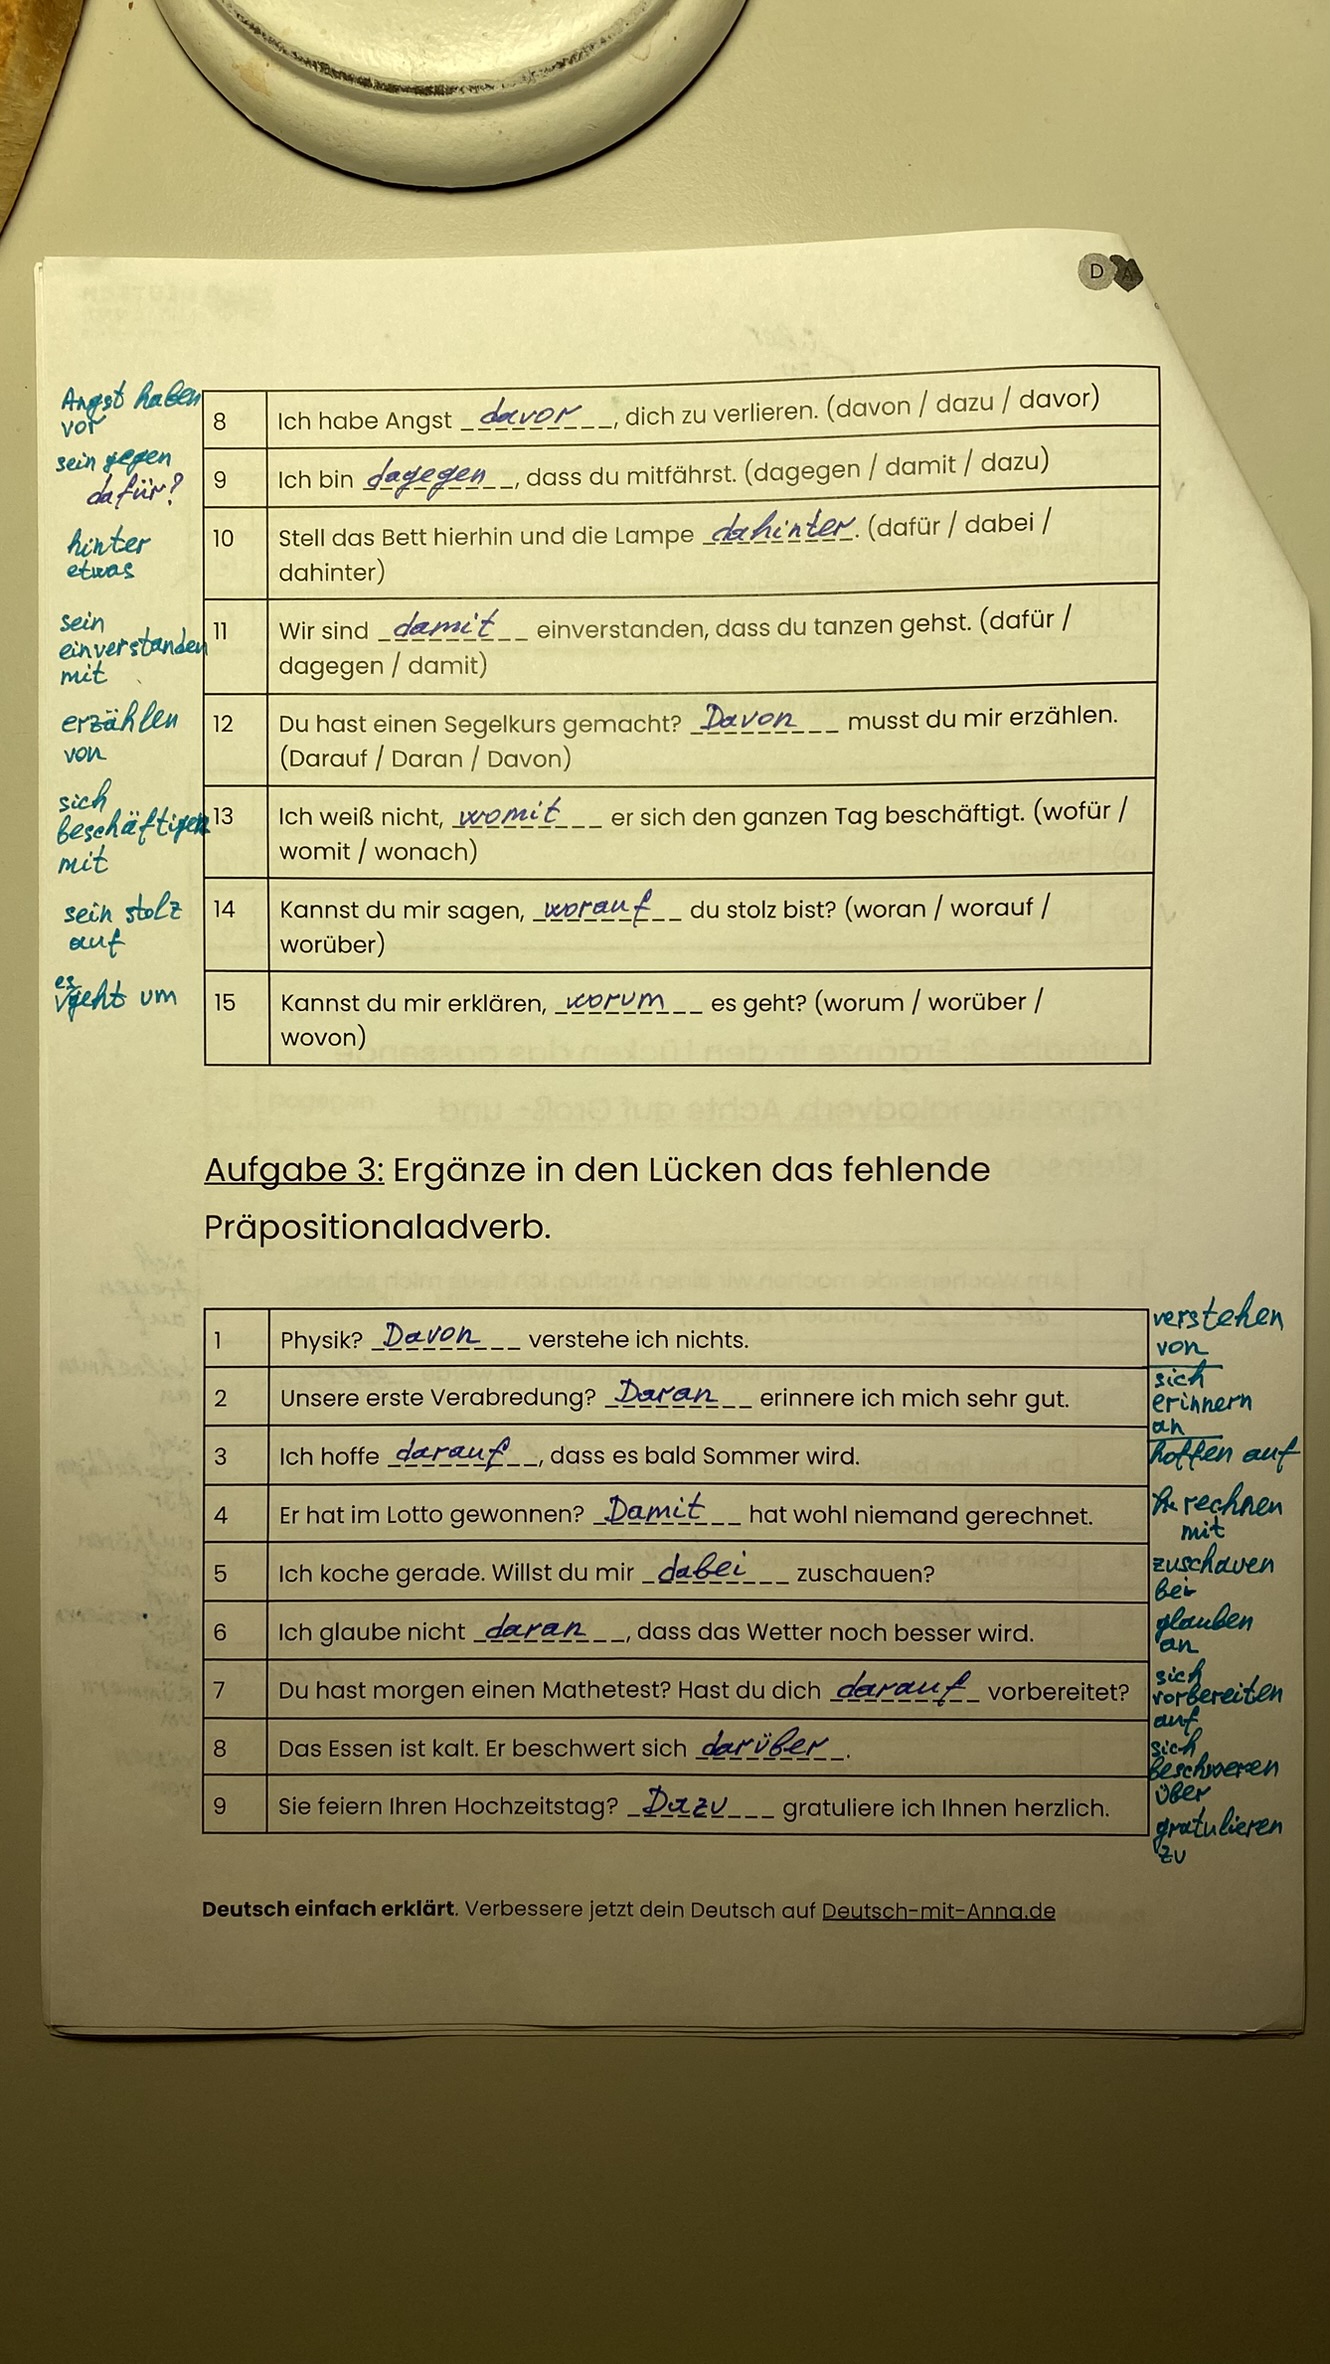 D A
Angst haben
vor
8 Ich habe Angst davor, dich zu verlieren. (davon / dazu / davor)
sein gegen
dafür?
9 Ich bin dagegen, dass du mitfährst. (dagegen / damit / dazu)
hinter
etwas
10 Stell das Bett hierhin und die Lampe dahinter. (dafür / dabei /
dahinter)
sein
einverstanden
mit
11 Wir sind damit einverstanden, dass du tanzen gehst. (dafür /
dagegen / damit)
erzählen
von
12 Du hast einen Segelkurs gemacht? Davon musst du mir erzählen.
(Darauf / Daran / Davon)
sich
beschäftigen
mit
13 Ich weiß nicht, womit er sich den ganzen Tag beschäftigt. (wofür /
womit / wonach)
sein stolz
auf
14 Kannst du mir sagen, worauf du stolz bist? (woran / worauf /
worüber)
es
geht um
15 Kannst du mir erklären, worum es geht? (worum / worüber /
wovon)
Aufgabe 3: Ergänze in den Lücken das fehlende
Präpositionaladverb.
1 Physik? Davon verstehe ich nichts.
verstehen
von
2 Unsere erste Verabredung? Daran erinnere ich mich sehr gut.
sich
erinnern
an
3 Ich hoffe darauf, dass es bald Sommer wird.
hoffen auf
4 Er hat im Lotto gewonnen? Damit hat wohl niemand gerechnet.
rechnen
mit
5 Ich koche gerade. Willst du mir dabei zuschauen?
zuschauen
bei
6 Ich glaube nicht daran, dass das Wetter noch besser wird.
glauben
an
7 Du hast morgen einen Mathetest? Hast du dich darauf vorbereitet?
sich
vorbereiten
auf
8 Das Essen ist kalt. Er beschwert sich darüber.
sich
beschweren
über
9 Sie feiern Ihren Hochzeitstag? Dazu gratuliere ich Ihnen herzlich.
gratulieren
zu
Deutsch einfach erklärt. Verbessere jetzt dein Deutsch auf Deutsch-mit-Anna.de